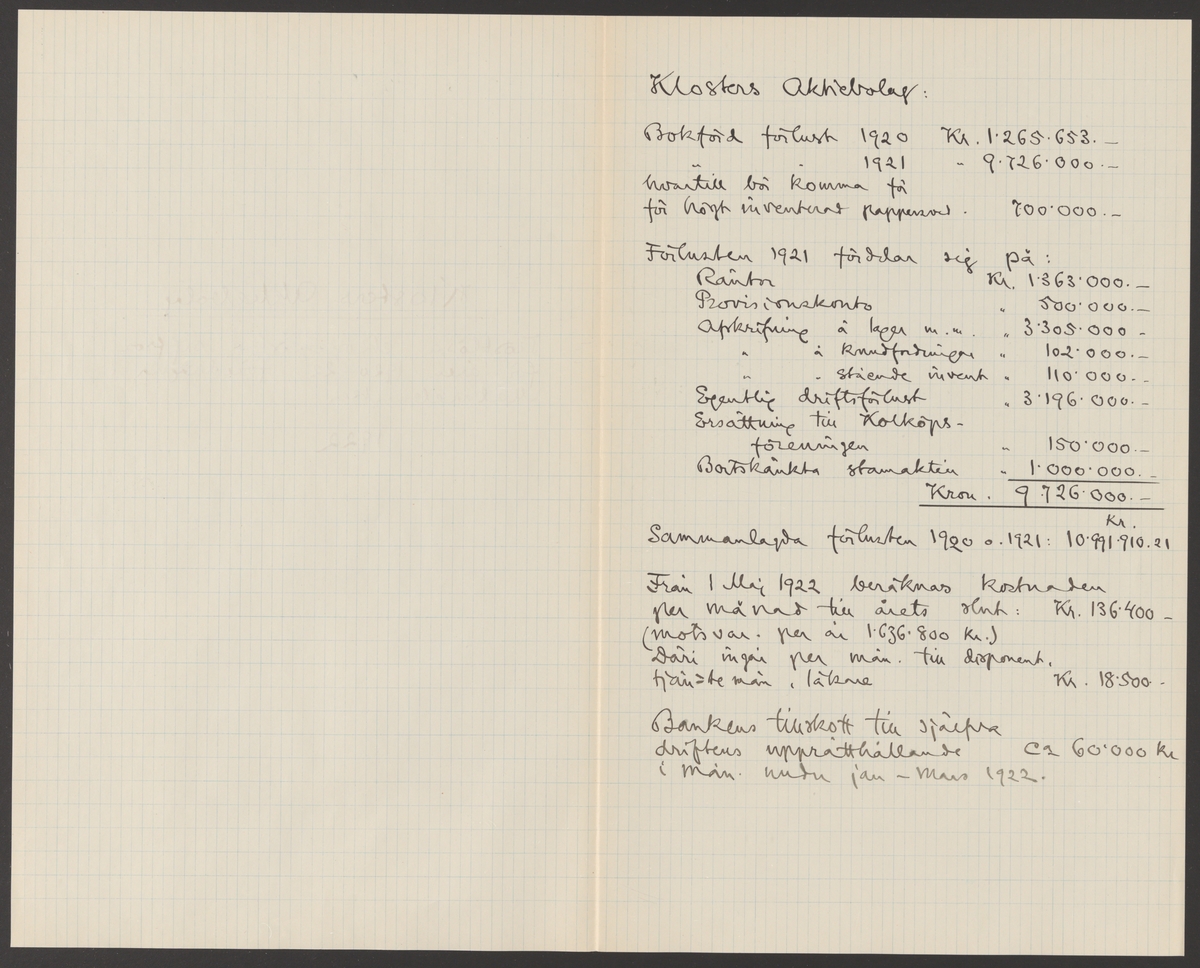 Klosters Aktiebolag:
Bokförd förlust 1920 Kr. 1.265.653.—
" " 1921 " 9.726.000.—
hvartill bör komma för
för högt inventerad pappersved. 700.000.—
Förlusten 1921 fördelar sig på:
Räntor Kr. 1.363.000.—
Provisionskonto " 500.000.—
Afskrifning å lager m.m. " 3.305.000 -
" å kundfordringar " 102.000.—
" " stående invent " 110.000.—
Egentlig driftsförlust " 3.196.000.—
Ersättning till Kolköps-
föreningen " 150.000.—
Bortskänkta stamaktier " 1.000.000.—
Kron. 9.726.000.—
Kr.
Sammanlagda förlusten 1920 o. 1921: 10.991.910.21
Från 1 Maj 1922 beräknas kostnaden
per månad till årets slut: Kr. 136.400 —
(motsvar. per år 1.636.800 Kr.)
Däri ingår per mån. till disponent,
tjänstemän, läkare Kr. 18.500 -
Bankens tillskott till själfva
driftens upprätthållande ca 60.000 Kr
i mån. under jan – Mars 1922.